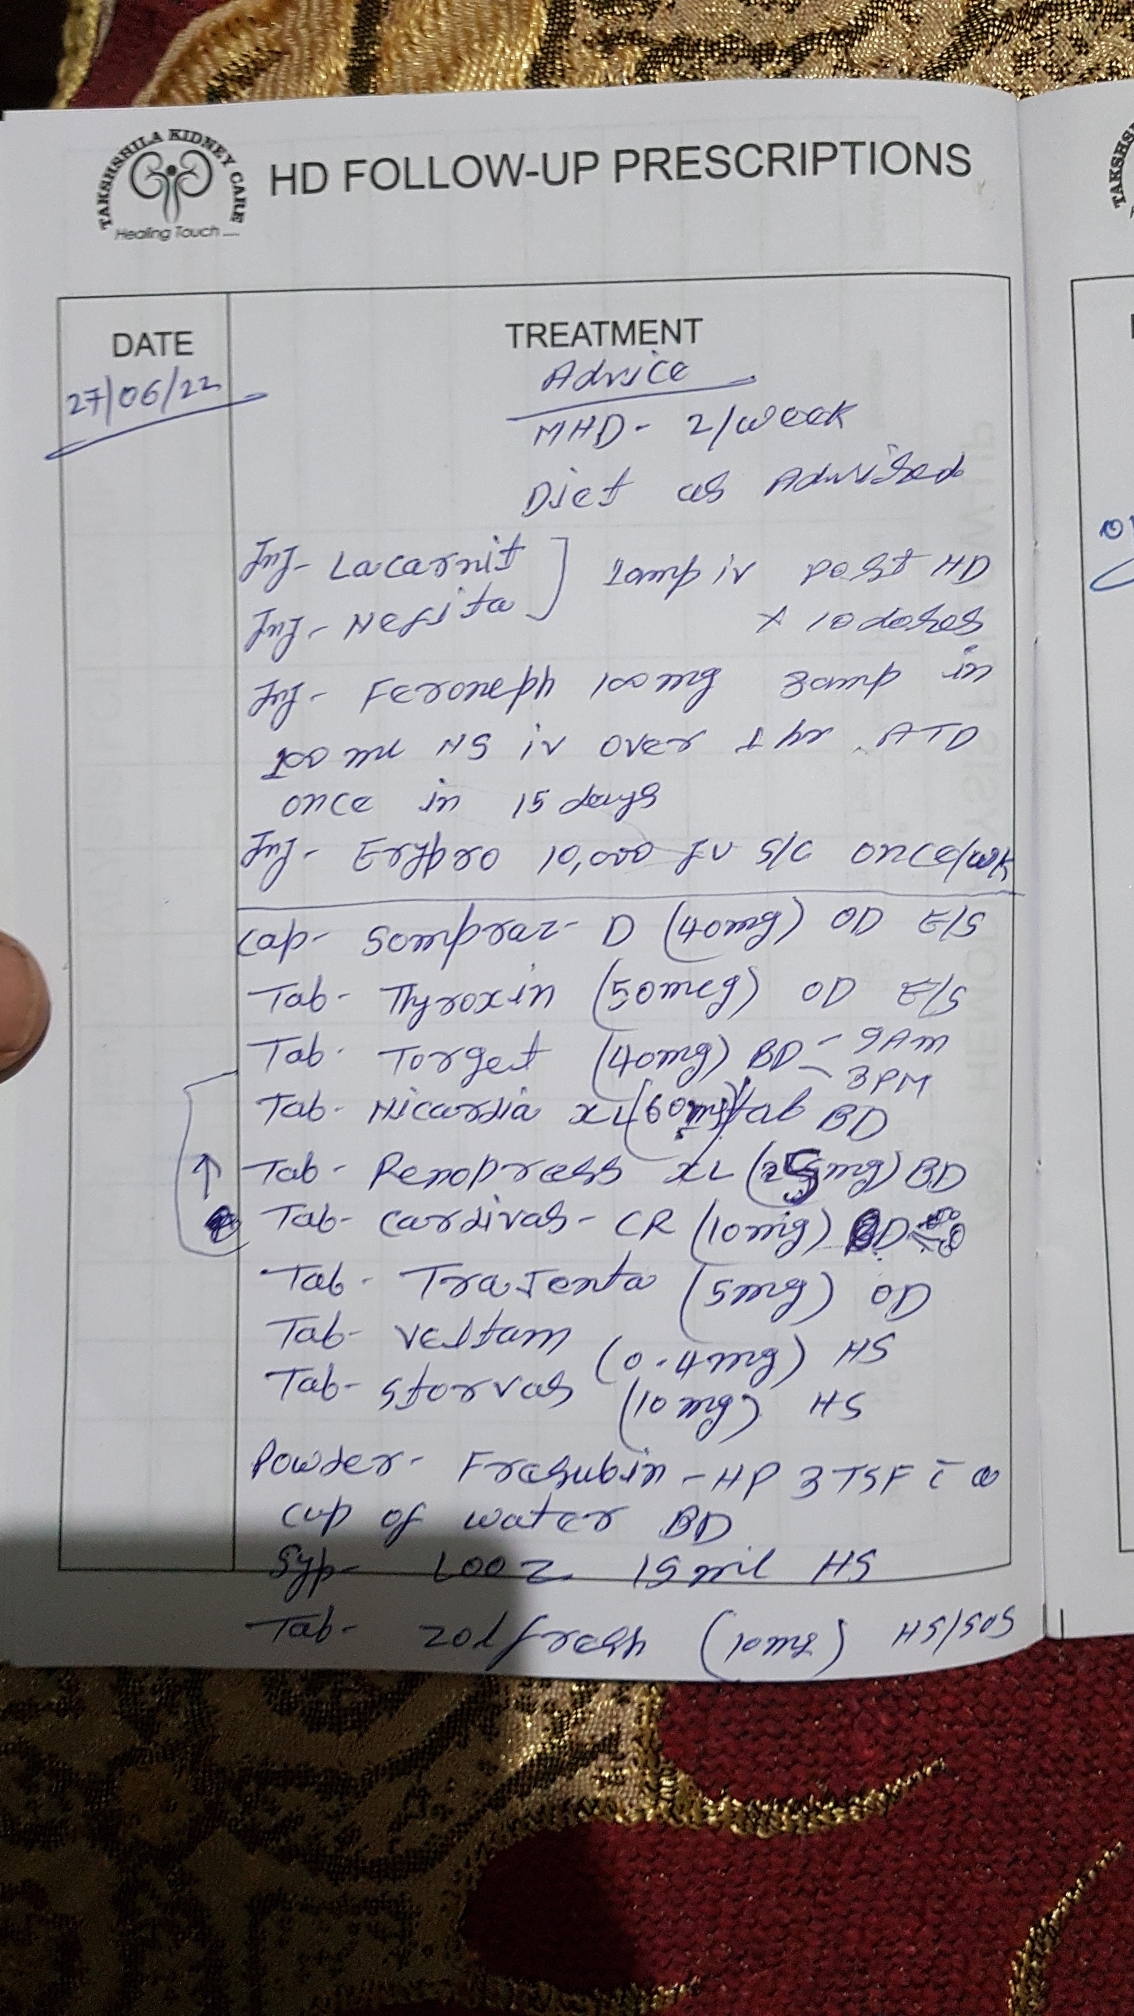 TAKSHSHILA KIDNEY CARE
Healing Touch ....
HD FOLLOW-UP PRESCRIPTIONS
DATE
TREATMENT
27/06/22
Advice
MHD- 2/week
Diet as Advised
Inj- Lacarnit ] 1amp iv post HD
Inj- Nefita x 10 doses
Inj- Feroneph 100mg amp in
100 ml NS iv over 1 hr ATD
once in 15 days
Inj- Erypro 10,000 IU S/C once/wk
Cap- Sompraz- D (40mg) OD E/S
Tab- Thyroxin (50mcg) OD E/S
Tab- Torget (40mg) BD - 9AM
- 3PM
Tab- Nicardia XL tab BD
↑ Tab- Renopress XL BD
Tab- Cardivas- CR (10mg)
Tab- Trajenta (5mg) OD
Tab- Veltam (0.4mg) HS
Tab- Storvas (10mg) HS
Powder- Fresubin - HP 3 TSF c̄ a
cup of water BD
Syp- Looz 15 ml HS
Tab- Zolfresh (10mg) HS/SOS